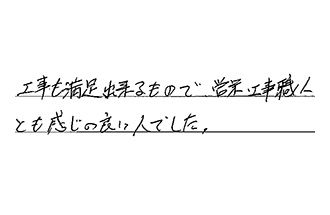 工事も満足出来るもので、営業、工事職人
とも感じの良い人でした。